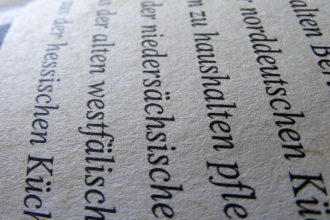 alten Ber
norddeutschen Kü
zu haushalten pfle
der niedersächsische
der alten westfälisch
der hessischen Küch